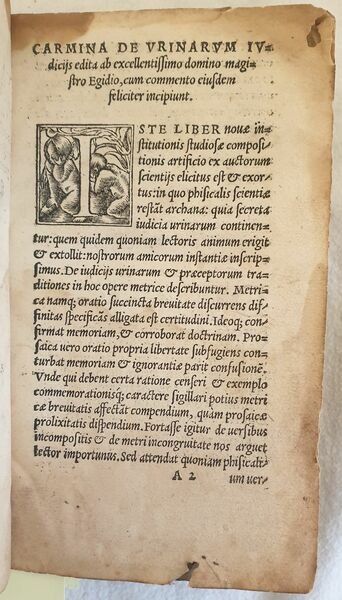 CARMINA DE VRINARVM IV-
dicijs edita ab excellentissimo domino magi
stro Egidio, cum commento eiusdem
feliciter incipiunt.
ISTE LIBER nouæ in-
stitutionis studiosæ composi
tionis artificio ex auctorum
scientijs elicitus est & exor
tus: in quo phisicalis scientiæ
restāt archana: quia secreta
iudicia urinarum continen-
tur: quem quidem quoniam lectoris animum erigit
& extollit: nostrorum amicorum instantiæ inscrip-
simus. De iudicijs urinarum & præceptorum tra-
ditiones in hoc opere metrice describuntur. Metri-
ca namq; oratio succincta breuitate discurrens dif-
finitas specificās alligata est certitudini. Ideoq; con-
firmat memoriam, & corroborat doctrinam. Pro-
saica uero oratio propria libertate subfugiens con-
turbat memoriam & ignorantiæ parit confusionē.
Vnde qui debent certa ratione censeri & exemplo
commemorationisq; caractere sigillari potius metri
cæ breuitatis affectāt compendium, quàm prosaicæ
prolixitatis dispendium. Fortasse igitur de uersibus
incompositis & de metri incongruitate nos arguet
lector importunus. Sed attendat quoniam phisicali
A 2 um uer-